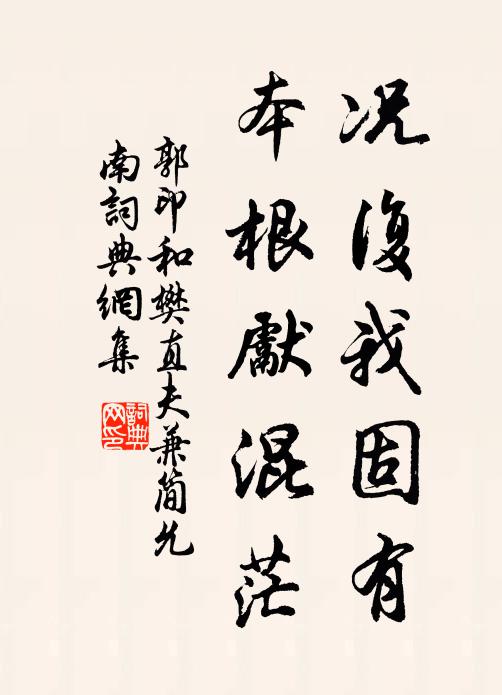 况復我固有
本根獻混茫
郭印和樊直夫兼简允
南詞典網集
詞典网印